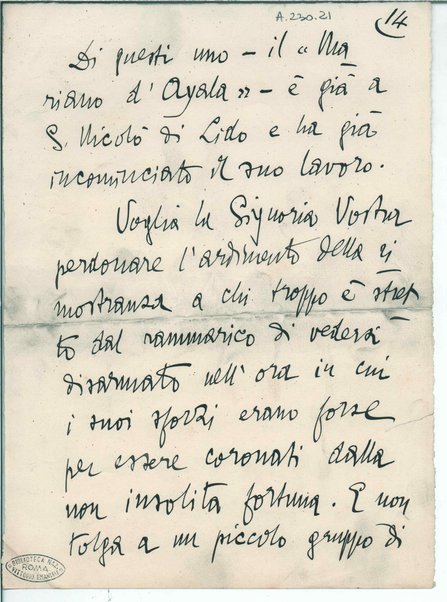 A.230.21
14
Di questi uno – il "Ma
riano d'Ayala" – è già a
S. Nicolò di Lido e ha già
incominciato il suo lavoro.
Voglia la Signoria Vostra
perdonare l'ardimento della ri
mostranza a chi troppo è stret
to dal rammarico di vedersi
disarmato nell'ora in cui
i suoi sforzi erano forse
per essere coronati dalla
non insolita fortuna. E non
tolga a un piccolo gruppo di
BIBLIOTECA NAZ.
ROMA
VITTORIO EMANUELE